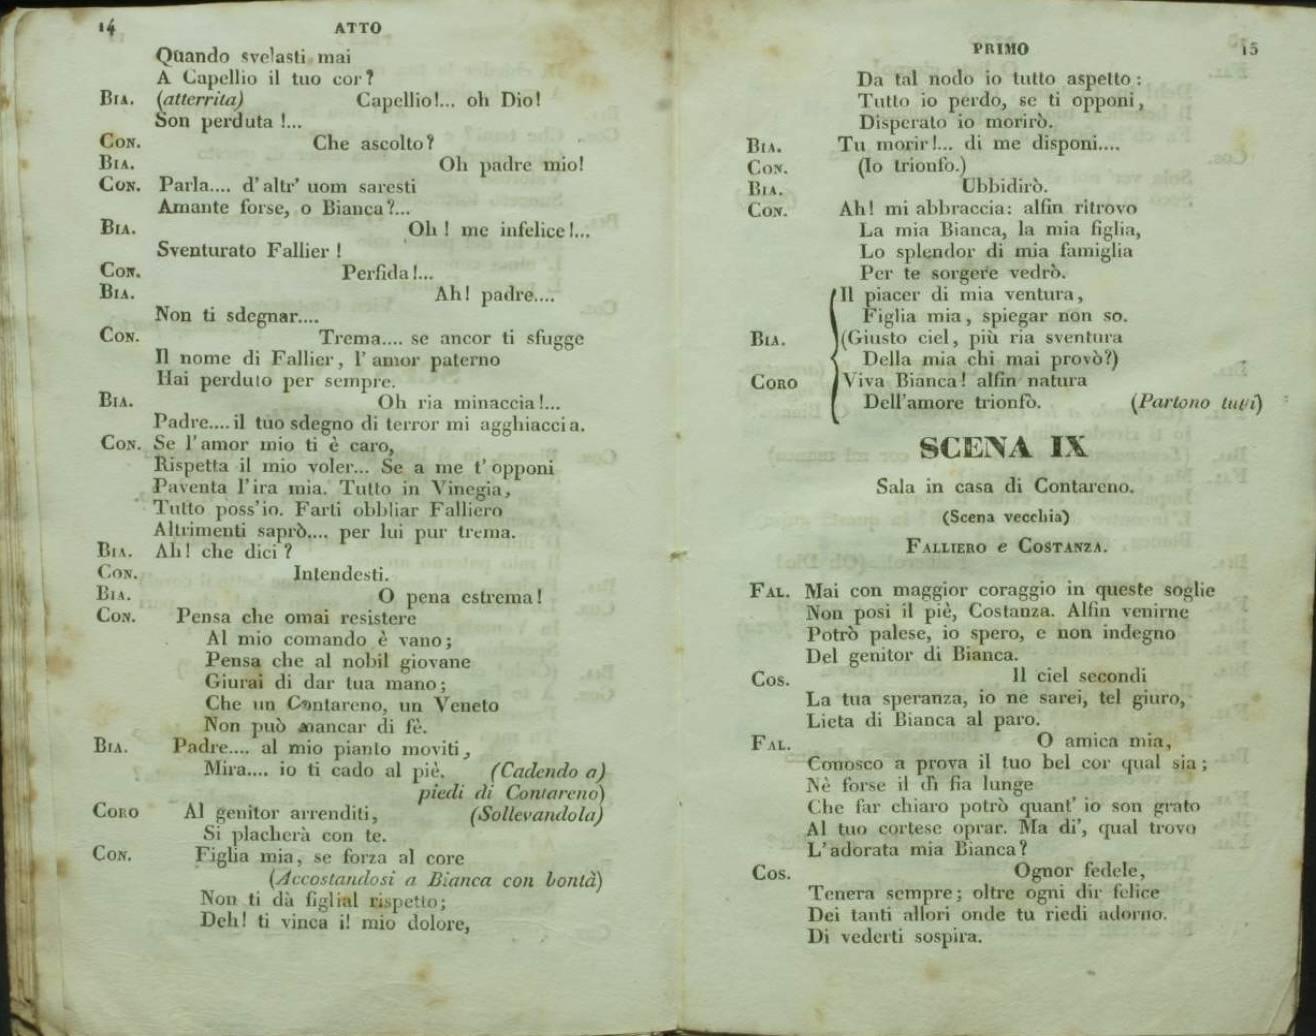 14 ATTO
Quando svelasti mai
A Capellio il tuo cor?
BIA. (atterrita) Capellio!... oh Dio!
Son perduta!...
CON. Che ascolto?
BIA. Oh padre mio!
CON. Parla.... d'altr' uom saresti
Amante forse, o Bianca?...
BIA. Oh! me infelice!...
Sventurato Fallier!
CON. Perfida!...
BIA. Ah! padre....
Non ti sdegnar....
CON. Trema.... se ancor ti sfugge
Il nome di Fallier, l'amor paterno
Hai perduto per sempre.
BIA. Oh ria minaccia!...
Padre.... il tuo sdegno di terror mi agghiaccia.
CON. Se l'amor mio ti è caro,
Rispetta il mio voler... Se a me t'opponi
Paventa l'ira mia. Tutto in Vinegia,
Tutto poss'io. Farti obbliar Falliero
Altrimenti saprò.... per lui pur trema.
BIA. Ah! che dici?
CON. Intendesti.
BIA. O pena estrema!
CON. Pensa che omai resistere
Al mio comando è vano;
Pensa che al nobil giovane
Giurai di dar tua mano;
Che un Contareno, un Veneto
Non può mancar di fè.
BIA. Padre.... al mio pianto moviti,
Mira.... io ti cado al piè. (Cadendo a)
piedi di Contareno)
CORO Al genitor arrenditi, (Sollevandola)
Si placherà con te.
CON. Figlia mia, se forza al core
(Accostandosi a Bianca con bontà)
Non ti dà figlial rispetto;
Deh! ti vinca il mio dolore,
PRIMO 15
Da tal nodo io tutto aspetto:
Tutto io perdo, se ti opponi,
Disperato io morirò.
BIA. Tu morir!... di me disponi....
CON. (Io trionfo.)
BIA. Ubbidirò.
CON. Ah! mi abbraccia: alfin ritrovo
La mia Bianca, la mia figlia,
Lo splendor di mia famiglia
Per te sorgere vedrò.
Il piacer di mia ventura,
Figlia mia, spiegar non so.
BIA. (Giusto ciel, più ria sventura
Della mia chi mai provò?)
CORO Viva Bianca! alfin natura
Dell'amore trionfò. (Partono tutti)
SCENA IX
Sala in casa di Contareno.
(Scena vecchia)
FALLIERO e COSTANZA.
FAL. Mai con maggior coraggio in queste soglie
Non posi il piè, Costanza. Alfin venirne
Potrò palese, io spero, e non indegno
Del genitor di Bianca.
COS. Il ciel secondi
La tua speranza, io ne sarei, tel giuro,
Lieta di Bianca al paro.
FAL. O amica mia,
Conosco a prova il tuo bel cor qual sia;
Nè forse il dì fia lunge
Che far chiaro potrò quant' io son grato
Al tuo cortese oprar. Ma di', qual trovo
L'adorata mia Bianca?
COS. Ognor fedele,
Tenera sempre; oltre ogni dir felice
Dei tanti allori onde tu riedi adorno.
Di vederti sospira.